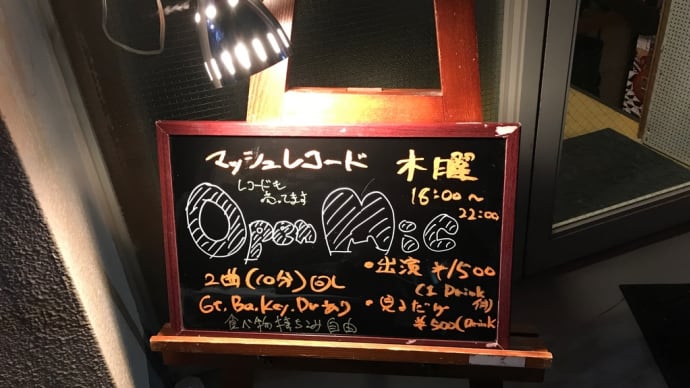 マッシュレコード 木曜
レコードも
売ってます
18:00〜
22:00
Open Mic
2曲(10分)回し
Gt.Ba.Key.Drあり
食べ物持ち込み自由
・出演 ¥1500
(1 Drink付)
・見るだけ
¥500(Drink